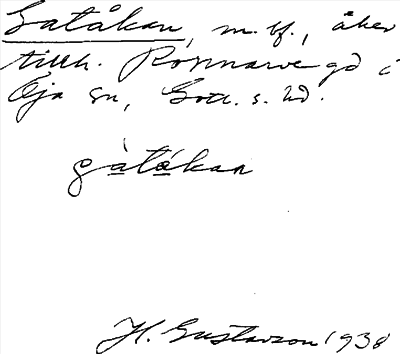 Gatåkan, m. bf., åker
tillh. Ronnarve gd i
Öja sn, Gotl. s. hd.
gàtákan
H. Gustavson 1938